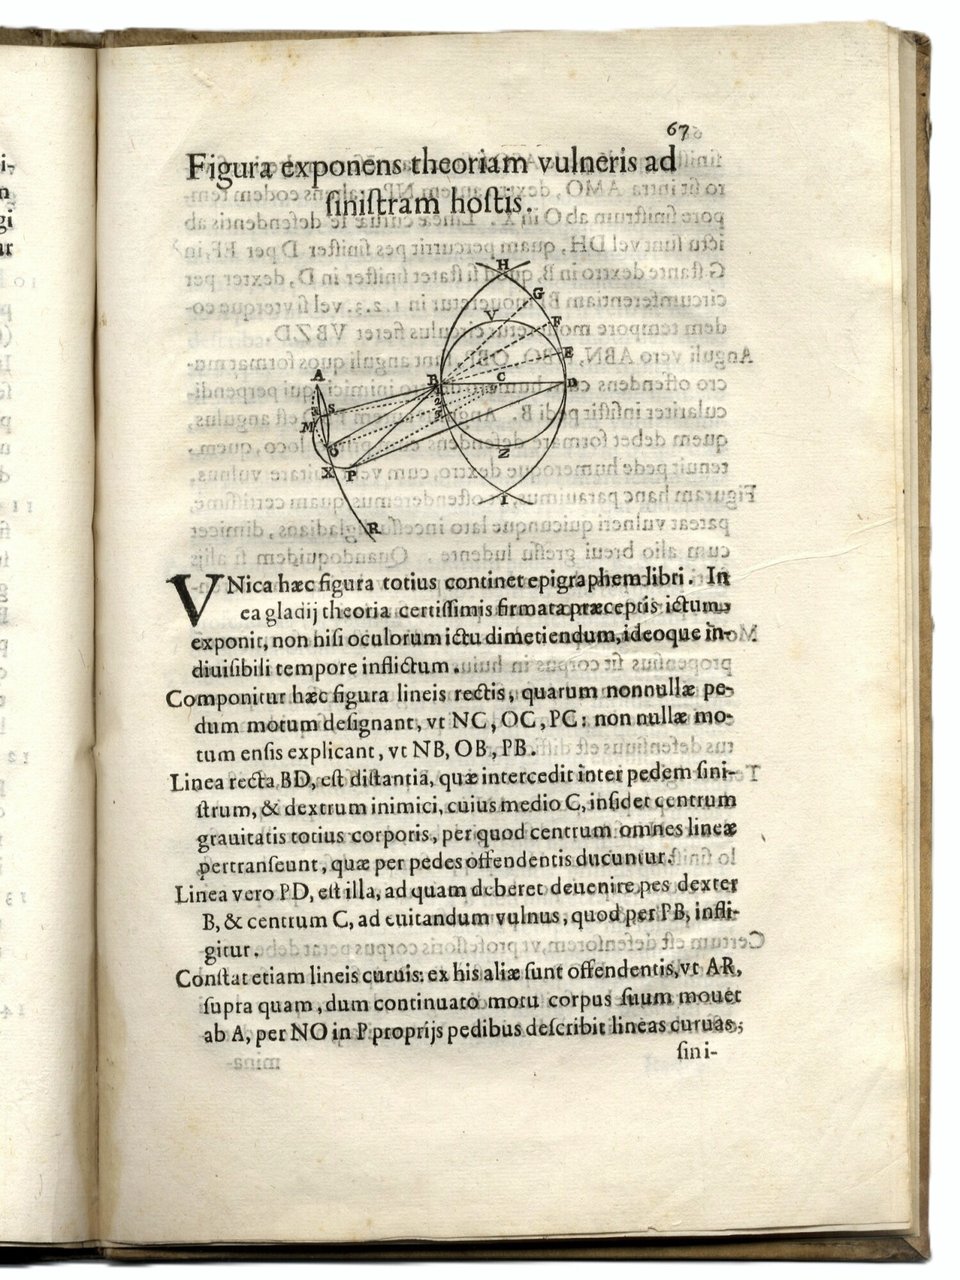 67
Figura exponens theoriam vulneris ad
ſiniſtram hoſtis.
H
G
V
F
E
A
B
C
D
S
M
O
Z
X P
I
R
VNica hæc figura totius continet epigraphem libri. In
ea gladij theoria certiſſimis firmata præceptis ictum
exponit, non niſi oculorum ictu dimetiendum, ideoque in-
diuiſibili tempore inflictum.
Componitur hæc figura lineis rectis, quarum nonnullæ pe-
dum motum deſignant, vt NC, OC, PC: non nullæ mo-
tum enſis explicant, vt NB, OB, PB.
Linea recta BD, eſt diſtantia, quæ intercedit inter pedem ſini-
ſtrum, & dextrum inimici, cuius medio C, inſidet centrum
grauitatis totius corporis, per quod centrum omnes lineæ
pertranſeunt, quæ per pedes offendentis ducuntur.
Linea vero PD, eſt illa, ad quam deberet deuenire pes dexter
B, & centrum C, ad euitandum vulnus, quod per PB, infli-
gitur.
Conſtat etiam lineis curuis: ex his aliæ ſunt offendentis, vt AR,
ſupra quam, dum continuato motu corpus ſuum mouet
ab A, per NO in P proprijs pedibus deſcribit lineas curuas,
ſini-